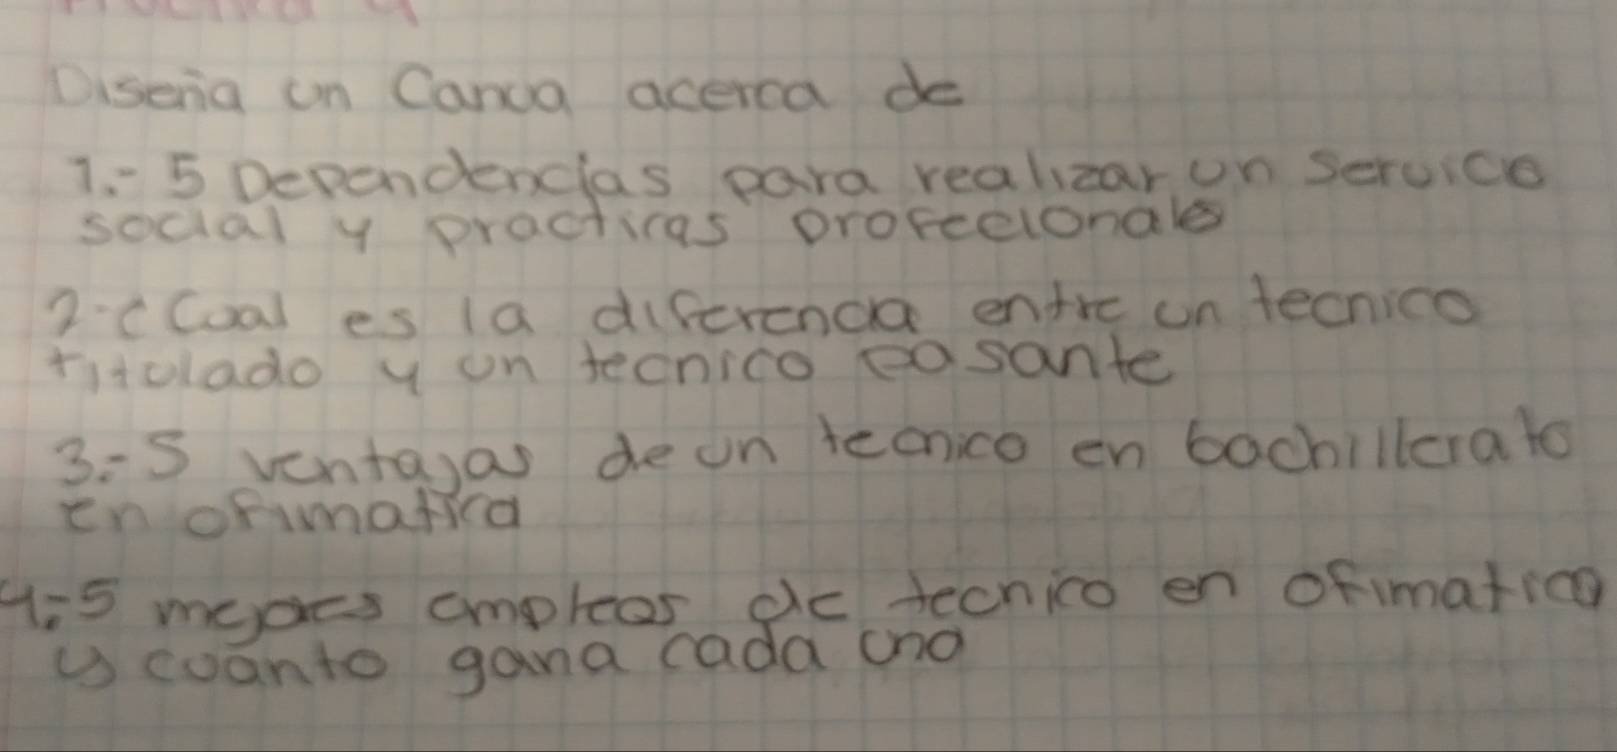 Diseña un Canva acerca de
1.- 5 Dependencias para realizar un Service
social y practicas profecionales
2.- ¿Cual es la diferencia entre un tecnico
titulado y un tecnico pasante
3.- 5 ventajas de un tecnico en bachillerato
en ofimatica
4.- 5 mejores empleos de tecnico en ofimatica
y cuanto gana cada uno